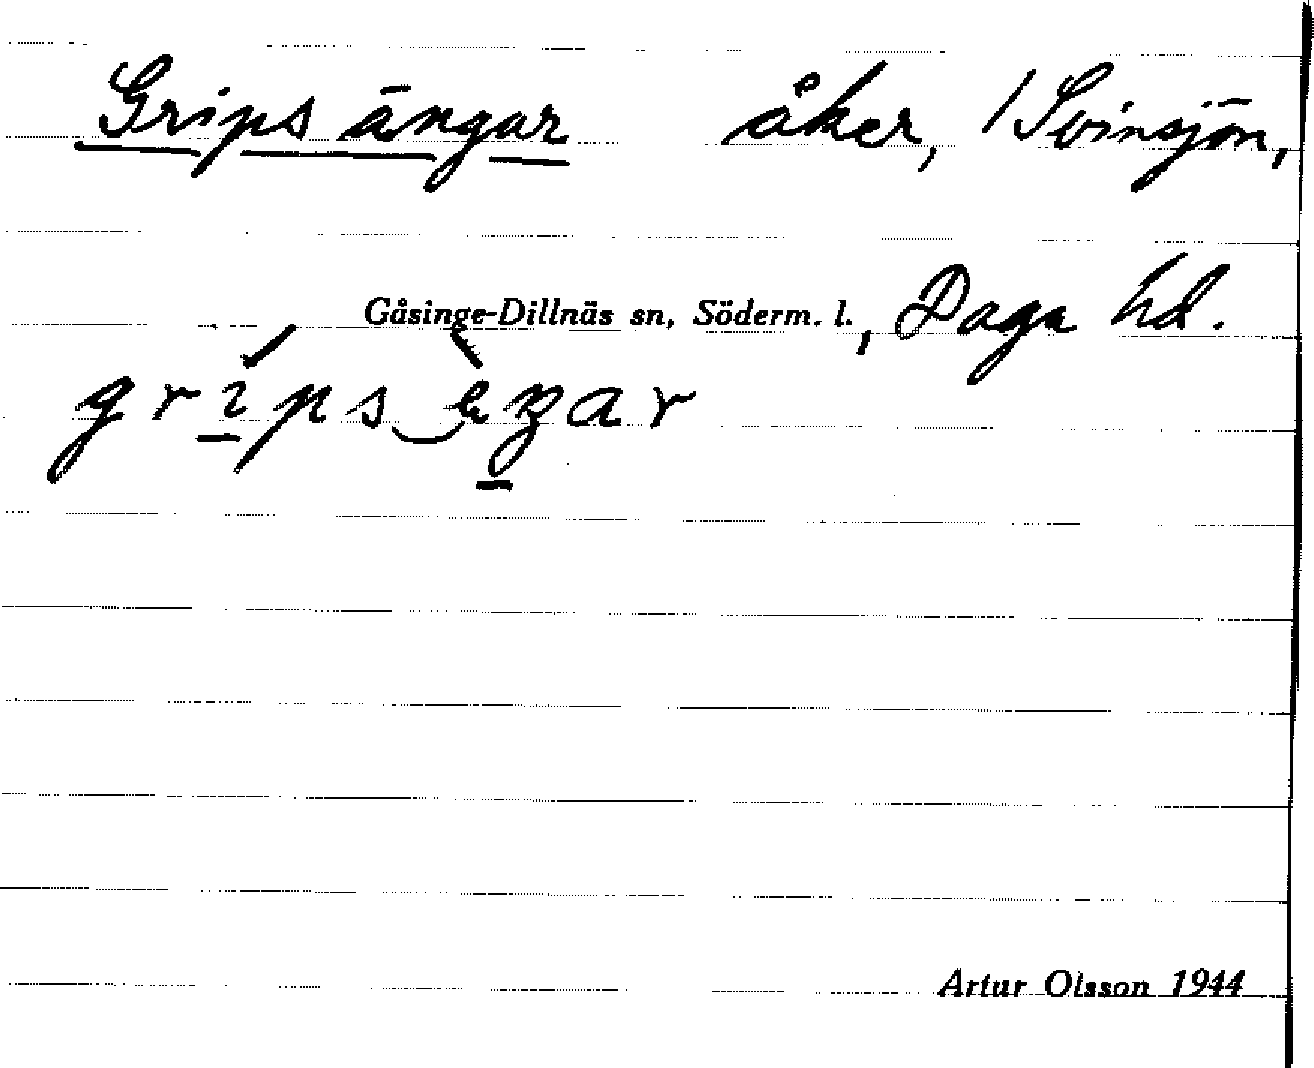 Grips ängar åker, /Svinsjön,
Gåsinge-Dillnäs sn, Söderm. l., Daga hd.
Artur Olsson 1944